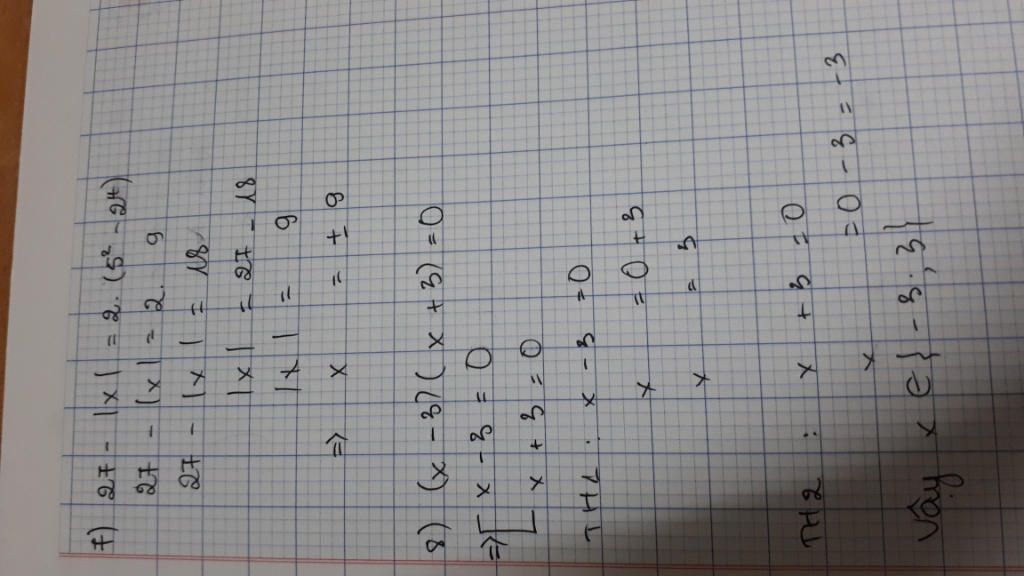 7) 27 - |x| = 2. (5² - 24)
27 - |x| = 2. 9
27 - |x| = 18
|x| = 27 - 18
|x| = 9
=> x = ± 9
8) (x - 3)(x + 3) = 0
=> [ x - 3 = 0
x + 3 = 0
TH1 : x - 3 = 0
x = 0 + 3
x = 3
TH2 : x + 3 = 0
x = 0 - 3 = -3
Vậy x ∈ { -3; 3 }